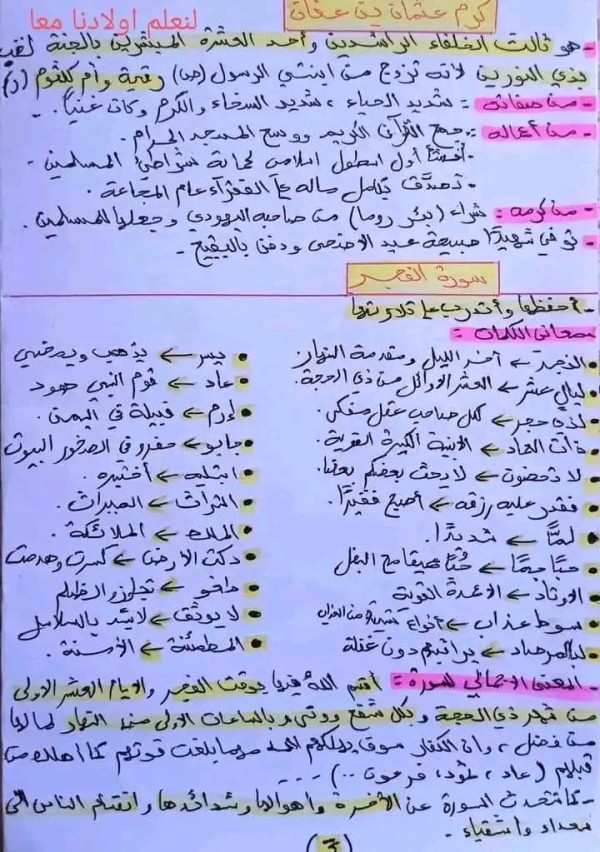 لنعلم اولادنا معا
كرم عثمان بن عفان
- هو ثالث الخلفاء الراشدين وأحد العشرة المبشرين بالجنة لقب
بذي النورين لأنه تزوج من ابنتي الرسول (ص) رقية وأم كلثوم (ر)
- من صفاته : شديد الحياء ، شديد السخاء والكرم وكان غنيا .
- من أعماله : جمع القرآن الكريم ووسع المسجد الحرام .
. أنشأ أول اسطول اسلامي لحماية شواطئ المسلمين .
. تصدق بكامل ماله على الفقراء عام المجاعة .
- من كرمه : شراء (بئر روما) من صاحبه اليهودي وجعلها للمسلمين .
- توفي شهيدًا صبيحة عيد الأضحى ودفن بالبقيع .
سورة الفجر
- أحفظها وأتدرب على تلاوتها
معاني الكلمات :
الفجر ← آخر الليل ومقدمة النهار.
ليال عشر ← العشر الأوائل من ذي الحجة.
لذي حجر ← لكل صاحب عقل مفكر.
ذات العماد ← الأبنية الكبيرة القوية.
لا تحضون ← لا يحث بعضكم بعضا.
فقدر عليه رزقه ← أصبح فقيرًا.
لمًّا ← شديدًا.
حبًا جمًا ← حُبًّا عميقا مع البخل
الاوتاد ← الأعمدة القوية
سوط عذاب ← أنواع كثيرة من العذاب
لبالمرصاد ← يراقبهم دون غفلة
يسر ← يذهب ويمضي
عاد ← قوم النبي هود
إرم ← قبيلة في اليمن.
جابو ← حفرو في الصخور البيوت
ابتله ← أختبره .
التراث ← الميراث .
الملك ← الملائكة .
دكت الأرض ← كسرت وهدمت
طغو ← تجاوز الظلم
لا يوثق ← لايشد بالسلاسل
المطمئنة ← الآمنة .
- المعنى الإجمالي للسورة : أقسم الله فيها بوقت الفجر والأيام العشر الأولى
من شهر ذي الحجة وبكل شفع ووتر وبالساعات الأولى من النهار لما لها
من فضل ، وان الكفار سوف يهلكهم الله مهما بلغت قوتهم كما اهلك من
قبلهم (عاد ، ثمود ، فرعون ..) ....
- كما تتحدث السورة عن الآخرة وأهوالها وشدائدها وانقسام الناس الى
سعداء وأشقياء .
(3)